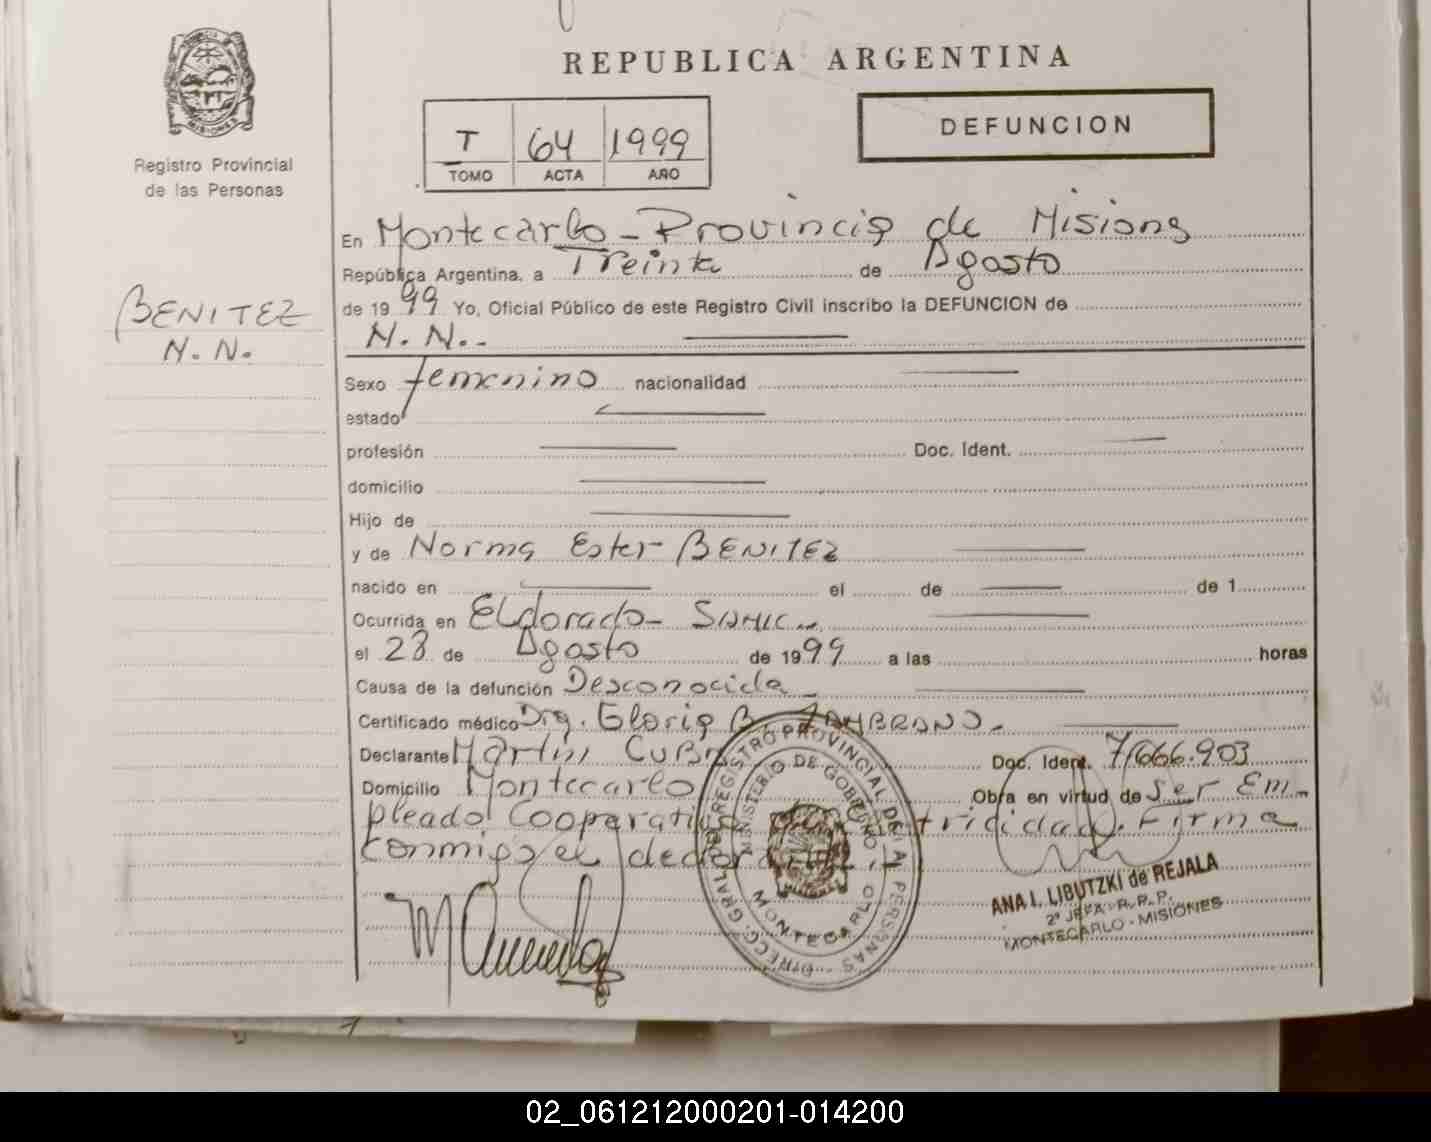 REPUBLICA ARGENTINA
PROVINCIA DE MISIONES
Registro Provincial
de las Personas
T 64 1999
TOMO ACTA AÑO
DEFUNCION
BENITEZ
N. N.
En Montecarlo - Provincia de Misiones
República Argentina, a Treinta de Agosto
de 1999 Yo, Oficial Público de este Registro Civil inscribo la DEFUNCION de
N. N. -
Sexo femenino nacionalidad
estado
profesión Doc. Ident.
domicilio
Hijo de
y de Norma Ester BENITEZ
nacido en el de de 1
Ocurrida en Eldorado - SAMIC
el 23 de Agosto de 1999 a las horas
Causa de la defunción Desconocida
Certificado médico Dra. Gloria B. ZAMBRANO.
Declarante Martin Doc. Ident. 7.666.903
Domicilio Montecarlo Obra en virtud de Ser Em
pleado Cooperativa de Electricidad. Firma
conmigo el declarante
DIREC. GRAL. DEL REGISTRO PROVINCIAL DE LAS PERSONAS
MINISTERIO DE GOBIERNO
MONTECARLO
ANA I. LIBUTZKI de REJALA
2ª JEFA R.R.P.
MONTECARLO - MISIONES
02_061212000201-014200